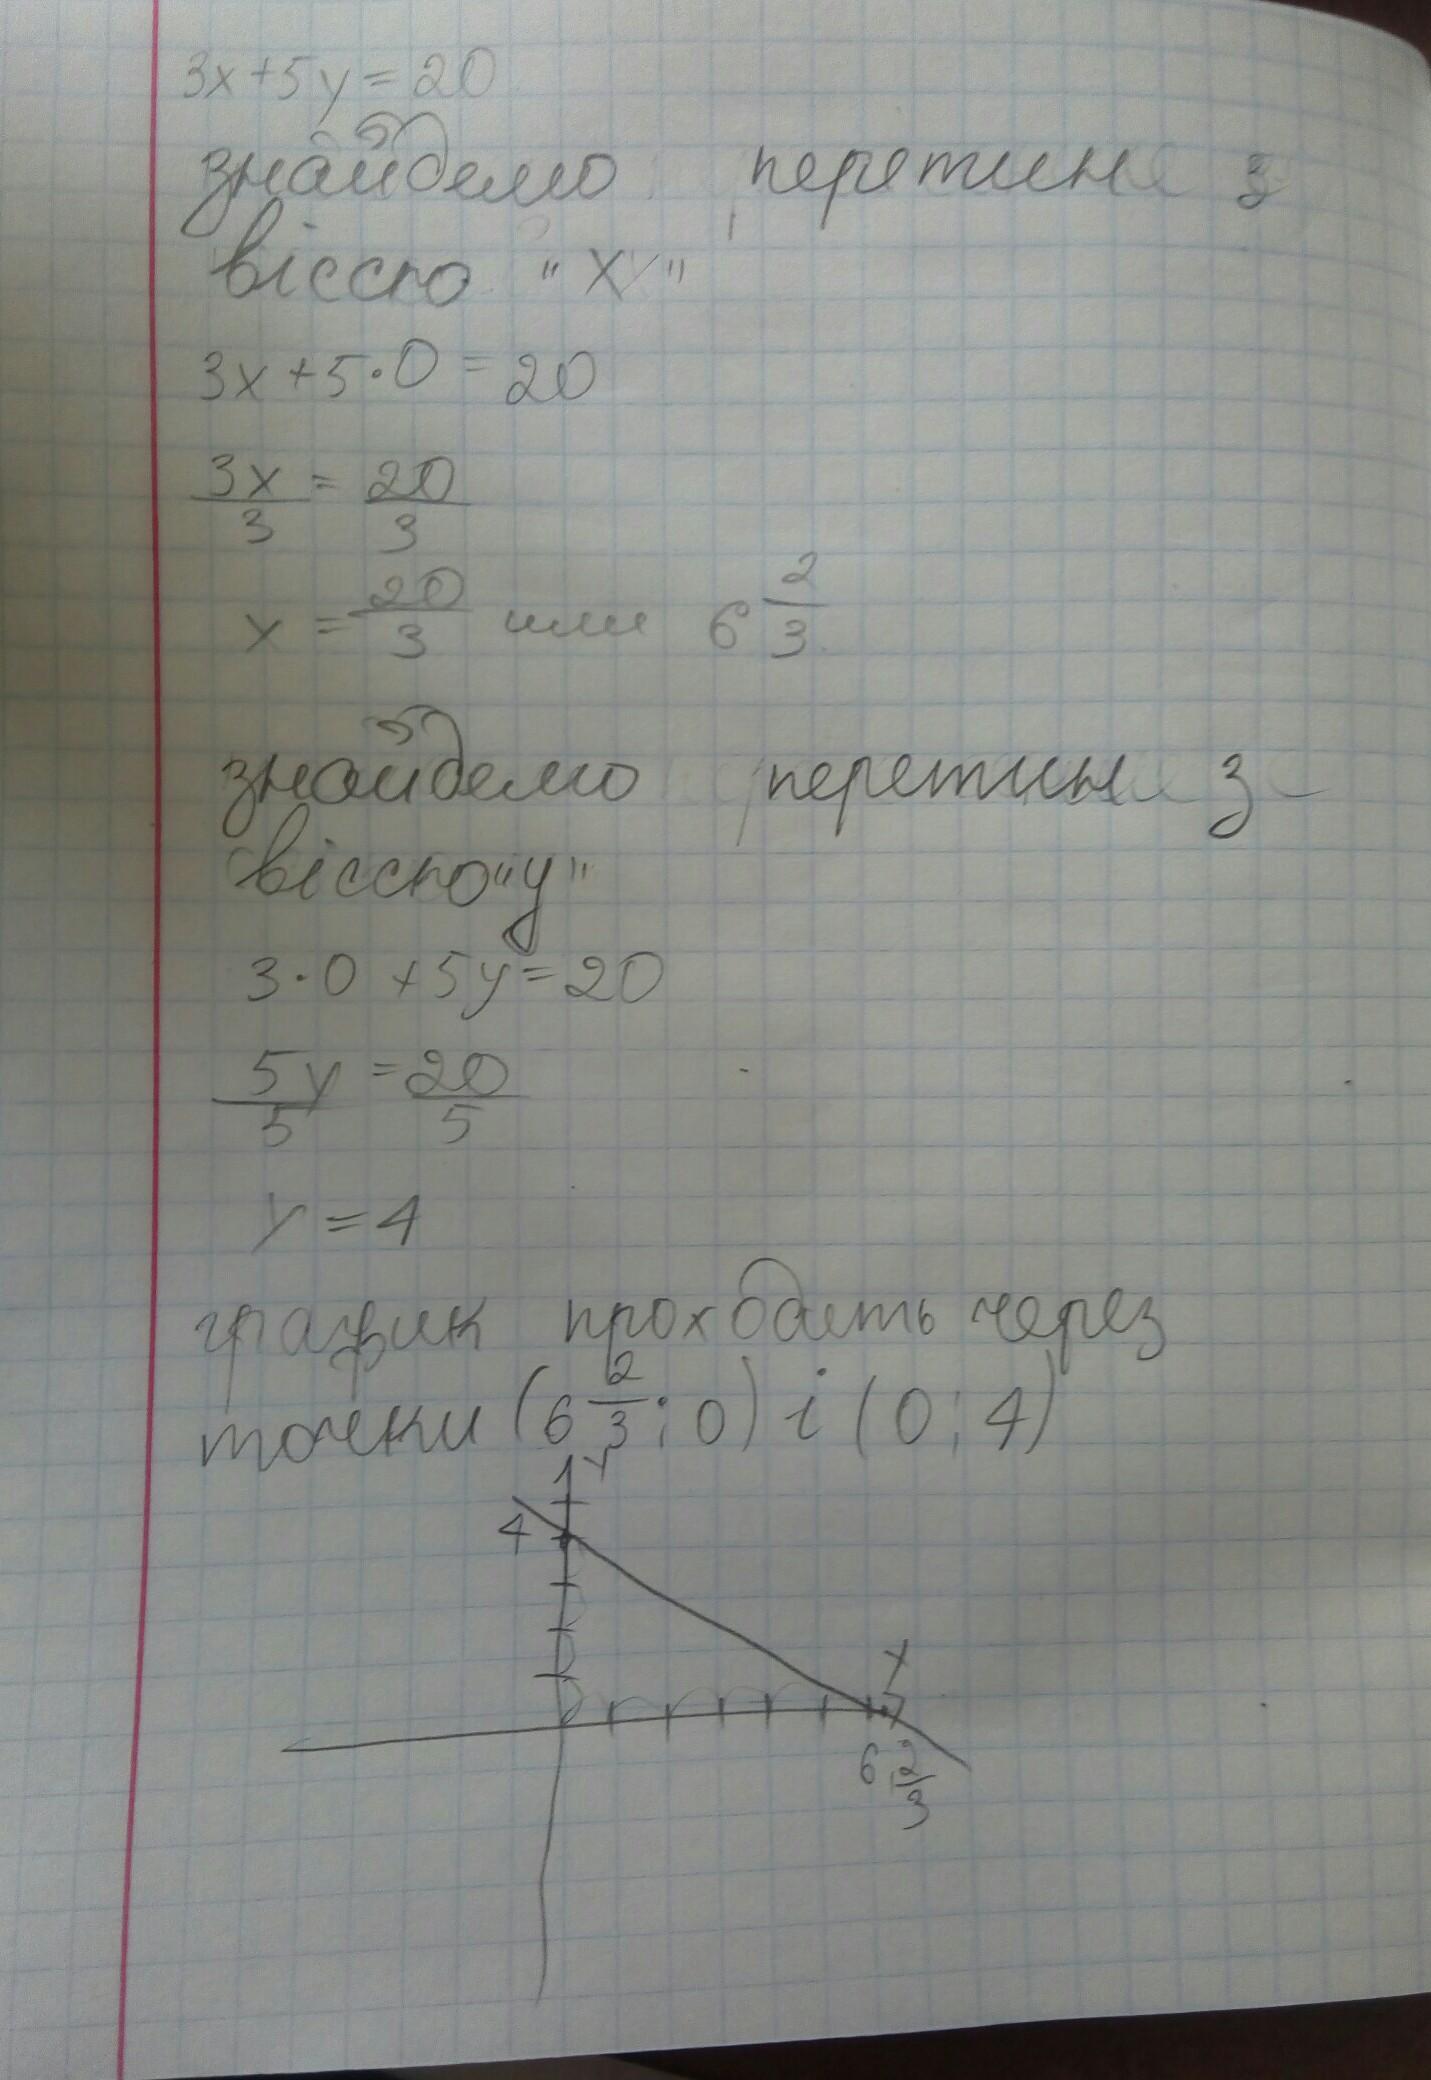 3x+5y=20
знайдемо перетин з
віссю "X"
3x+5·0=20
3x/3 = 20/3
x = 20/3 или 6 2/3
знайдемо перетин з
віссю "y"
3·0+5y=20
5y/5 = 20/5
y=4
график прохдить через
точки (6 2/3; 0) і (0; 4)
y
4
x
6 2/3